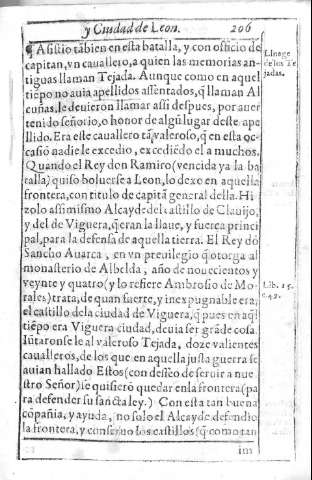 y Ciudad de Leon. 206
¶ Asistio tābien en esta batalla, y con officio de
capitan, vn cauallero, a quien las memorias an-
tiguas llaman Tejada. Aunque como en aquel
tiēpo no auia apellidos assentados, q̃ llaman Al
cuñas, le deuieron llamar assi despues, por auer
tenido señorio, o honor de algũ lugar deste ape
llido. Era este cauallero tã valeroso, q̃ en esta oc-
casiõ nadie le excedio, excediēdo el a muchos.
Quando el Rey don Ramiro (vencida ya la ba
talla) quiso boluerse a Leon, lo dexo en aquella
frontera, con titulo de capitã general della. Hi
zolo assimismo Alcayde del castillo de Clauijo,
y del de Viguera, q̃ eran la llaue, y fuerça princi
pal, para la defensa de aquella tierra. El Rey dõ
Sancho Auarca, en vn preuilegio q̃ otorga al
monasterio de Albelda, año de nouecientos y
veynte y quatro (y lo refiere Ambrosio de Mo-
rales) trata, de quan fuerte, y inexpugnable era,
el castillo de la ciudad de Viguera, q̃ pues en aq̃l
tiēpo era Viguera ciudad, deuia ser grãde cosa.
Iũtaronse le al valeroso Tejada, doze valientes
caualleros, de los que en aquella justa guerra se
auian hallado Estos (con desseo de seruir a nue
stro Señor) se quisierõ quedar en la frontera (pa
ra defender su sancta ley.) Con esta tan buena
cõpañia, y ayuda, no solo el Alcayde defendio
la frontera, y conseruo los castillos (q̃ como tan
im
Linage
de los Te
jadas.
Lib. 15.
c. 42.